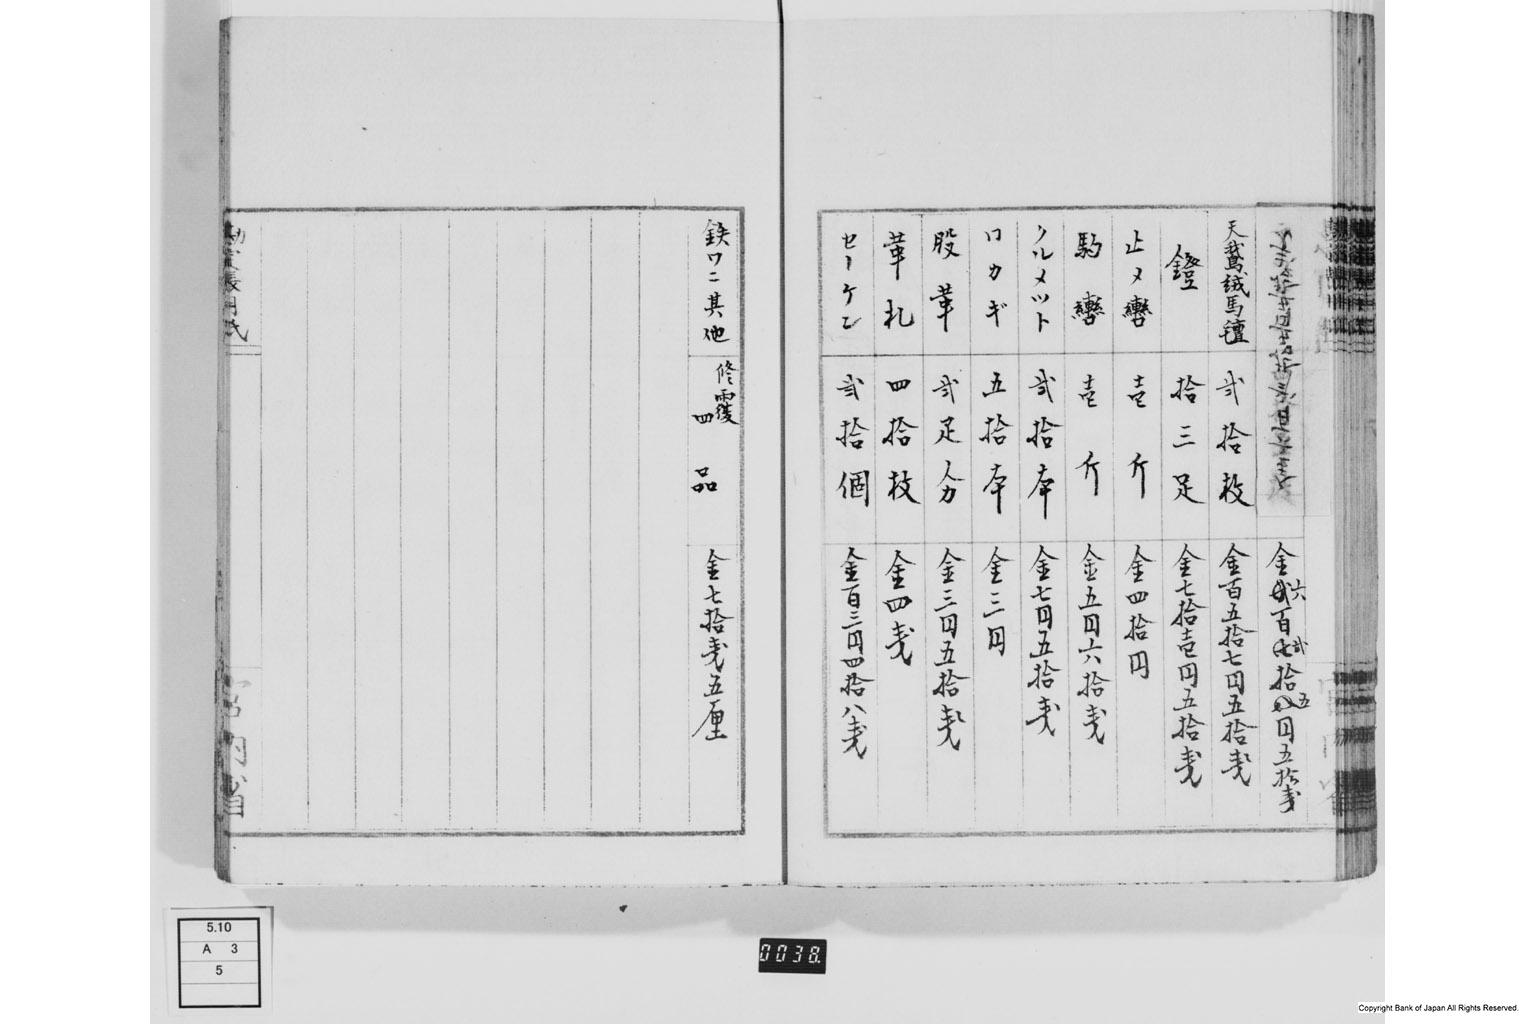 金六百弐拾五円五拾戔
天鵞絨馬氈 弐拾枚 金百五拾七円五拾戔
鐙 拾三足 金七拾壱円五拾戔
止メ轡 壱斤 金四拾円
駒轡 壱斤 金五円六拾戔
ノルメツト 弐拾本 金七円五拾戔
ロカギ 五拾本 金三円
股革 弐足人力 金三円五拾戔
革札 四拾枚 金四戔
セーケン 弐拾個 金百三円四拾八戔
鉄ワニ其他 修覆四品 金七拾戔五厘
宮内省
5.10
A 3
5
0038.
Copyright Bank of Japan All Rights Reserved.